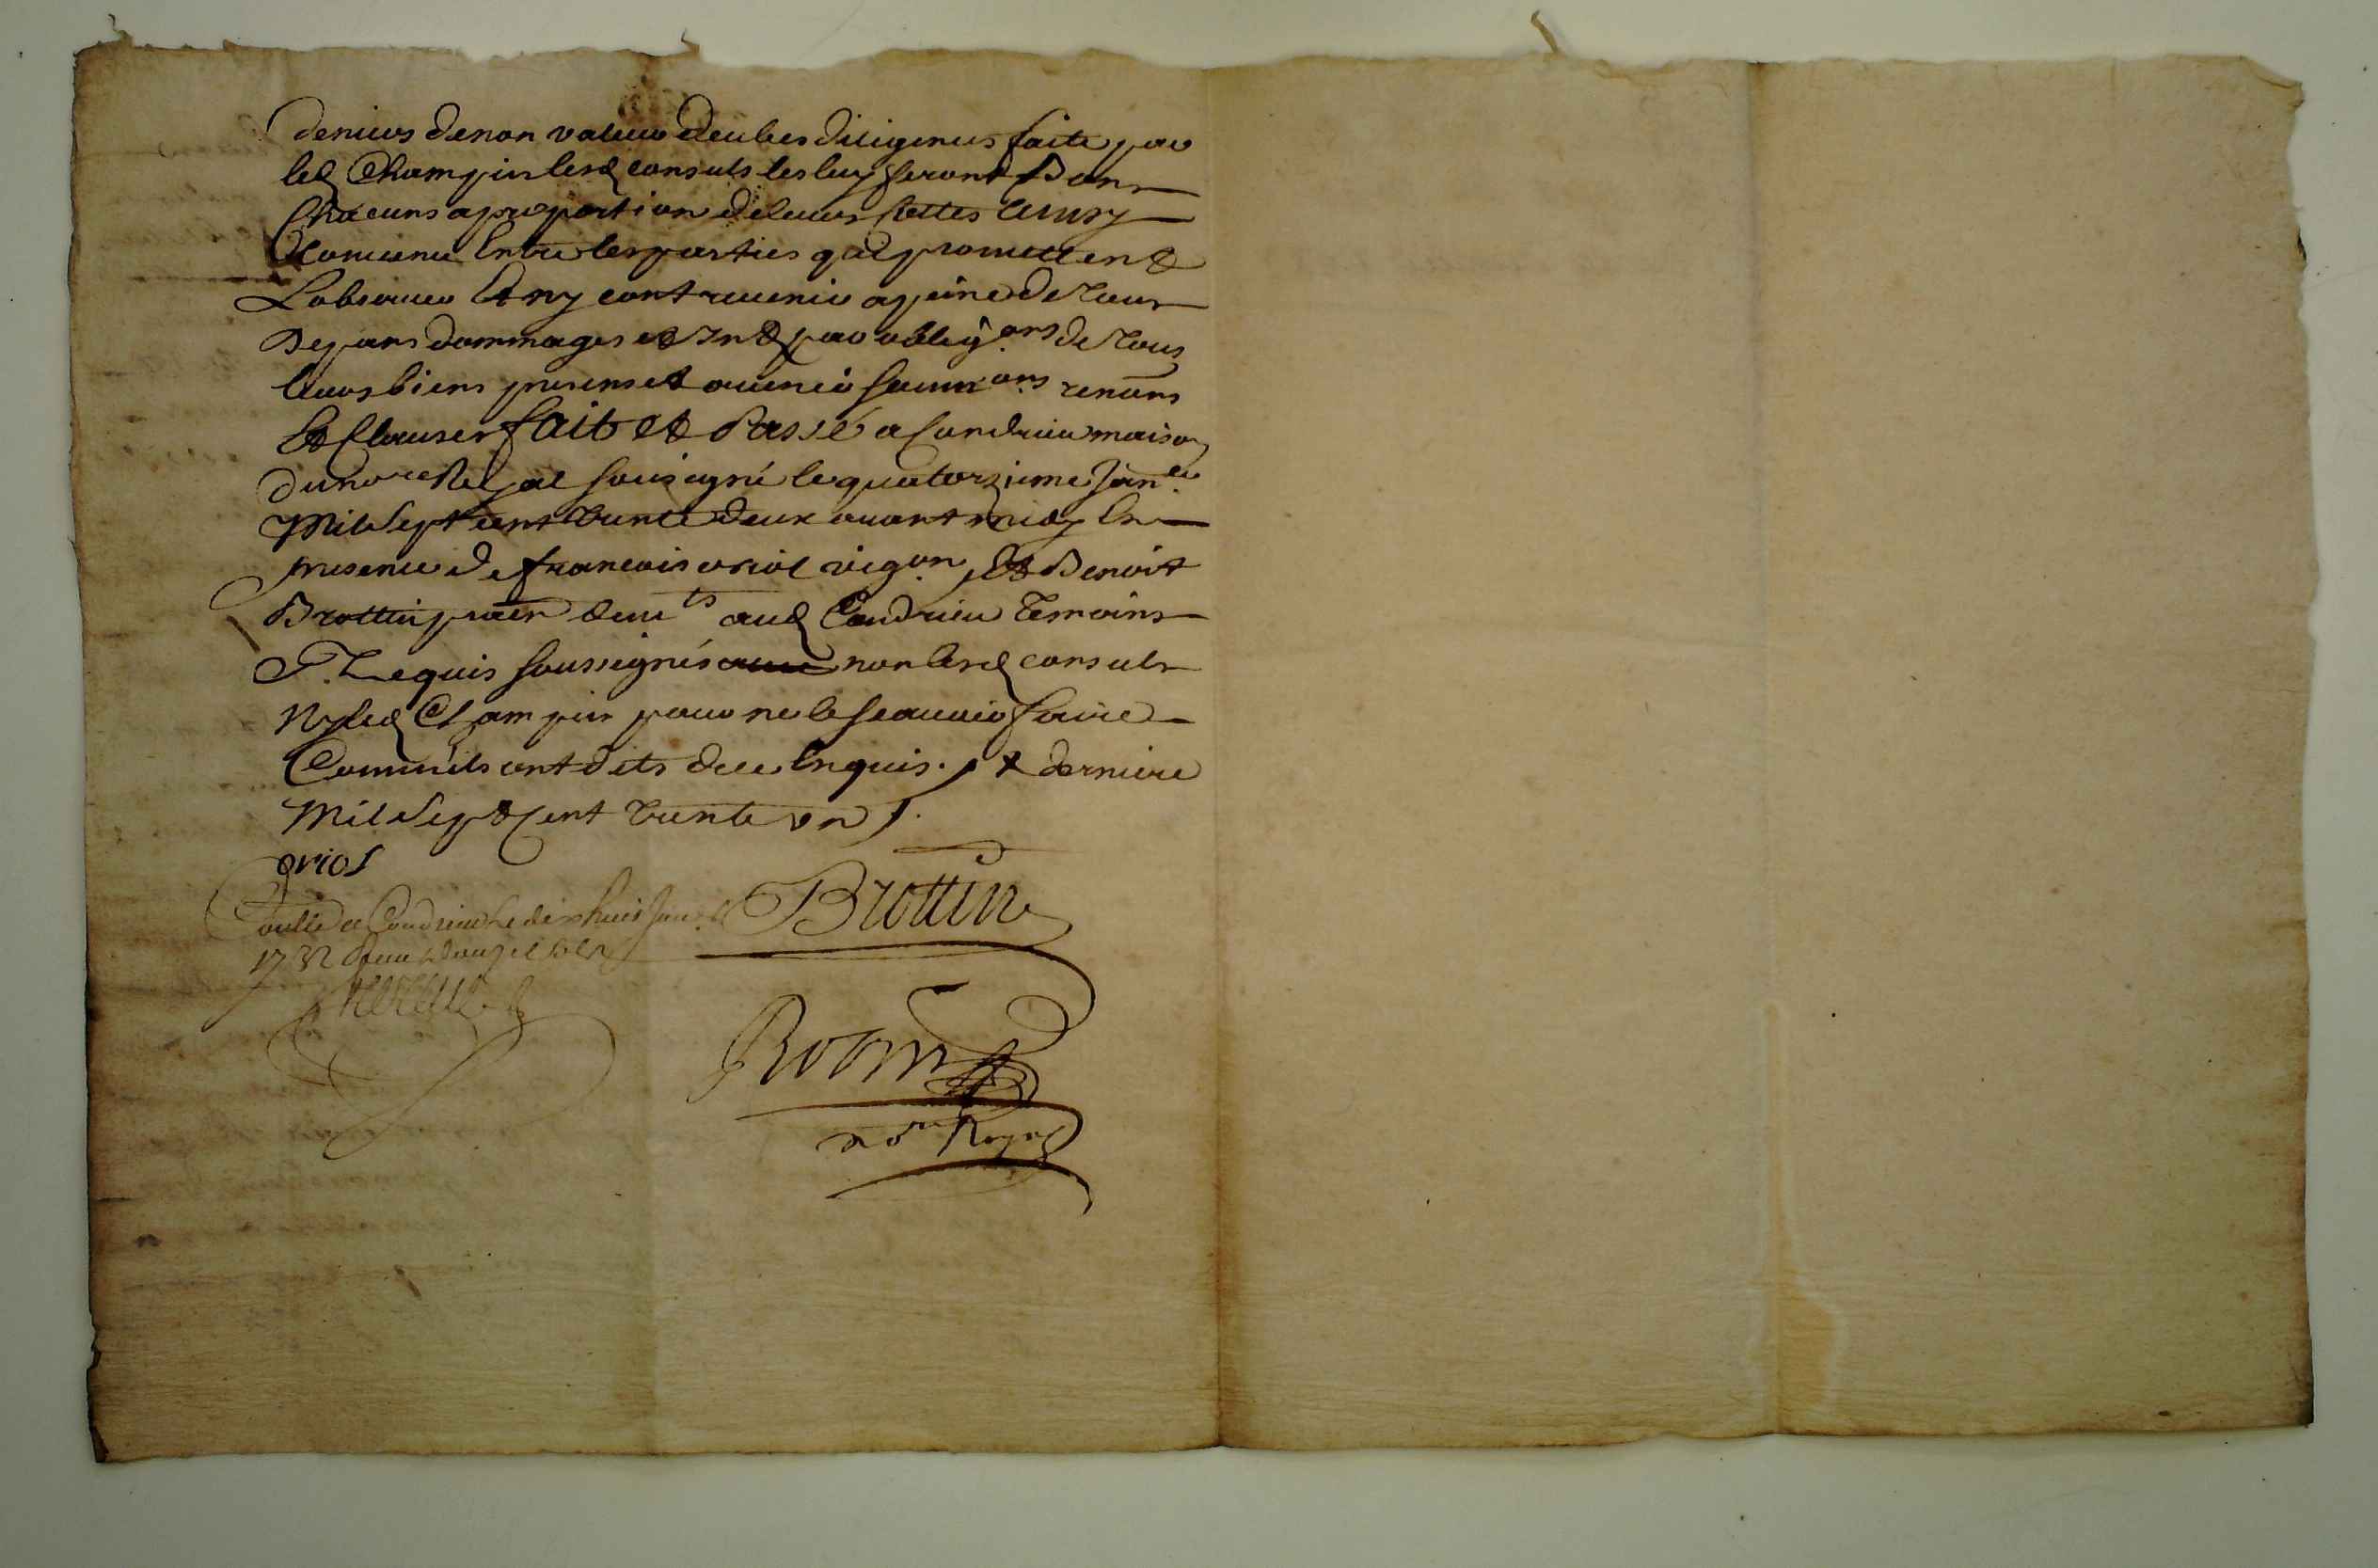 deniers de non valeur deubes diligences faite par
led Champin lesd consuls les luy seront Bons
Chacuns a proportion de leurs cottes ainsy
Convenu Entre les parties qui promettent
L'observer Et ny contrevenir a peine de tous
Depans dommages et Int par obligons de tous
leurs biens presens et avenir soumons renons
Et Clauses fait et Passé a Condrieu maison
du nore Royal sousigné le quatorzieme Janer
Mil Sept cent trente deux avant midy En
presence de francois oriol vigon Et Benoit
Brottin demts aud Condrieu Temoins
Requis soussignés non lesd consuls
Ny led Champin pour ne le scavoir faire
Comm'ils ont dits de ce Enquis. / x derniere
Mil Sept Cent trente un /.
oriol
Brottin
Collé a Condrieu Le dix huit Janer
1732 Receu douze sols
nore Royal